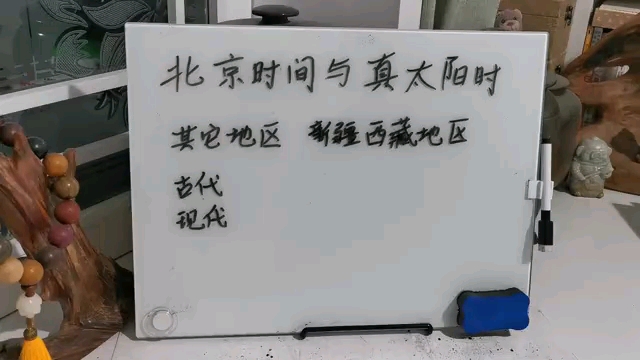 北京时间与真太阳时
其它地区 新疆西藏地区
古代
现代